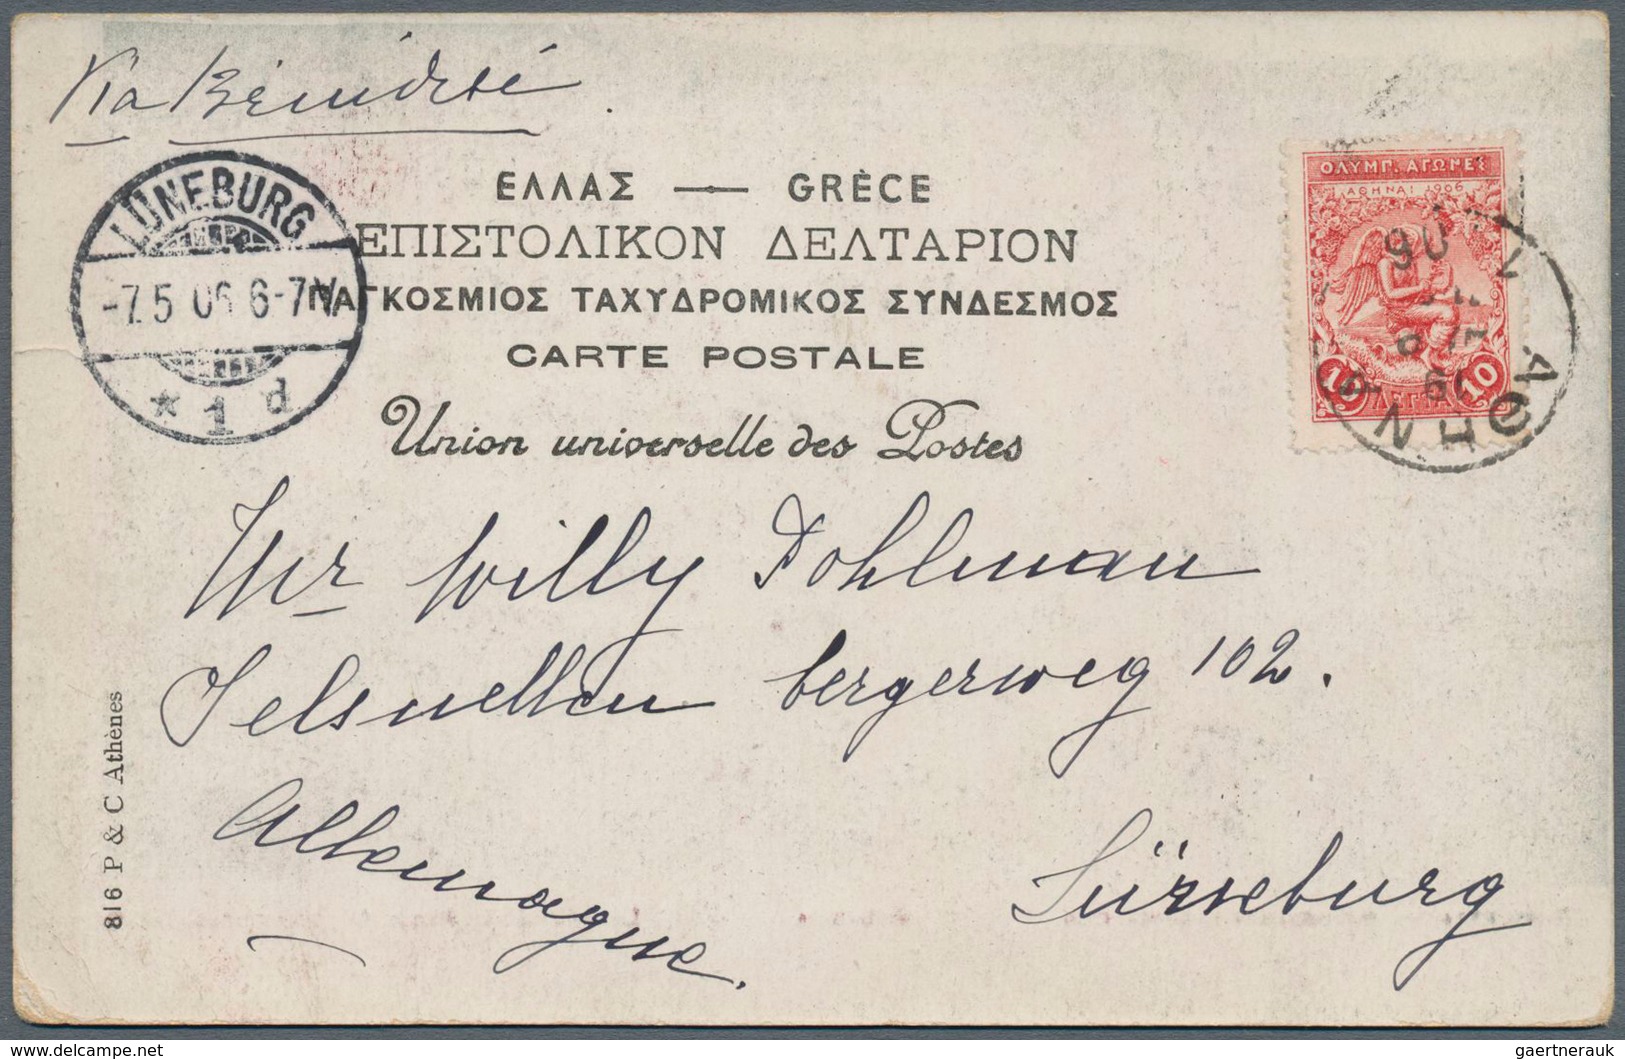 Via Brindisi
ΕΛΛΑΣ — GRÈCE
ΕΠΙΣΤΟΛΙΚΟΝ ΔΕΛΤΑΡΙΟΝ
ΠΑΓΚΟΣΜΙΟΣ ΤΑΧΥΔΡΟΜΙΚΟΣ ΣΥΝΔΕΣΜΟΣ
CARTE POSTALE
Union universelle des Postes
LÜNEBURG
-7.5 06 6-7N
* 1 d
ΟΛΥΜΠ. ΑΓΩΝΕΣ
ΑΘΗΝΑΙ 1906
10 ΛΕΠΤΑ 10
ΑΘΗΝΑ
Mr Willy Pohlman
bergerweg 102.
Allemagne.
Lüneburg
816 P & C Athènes
delcampe.net
gaertnerauk